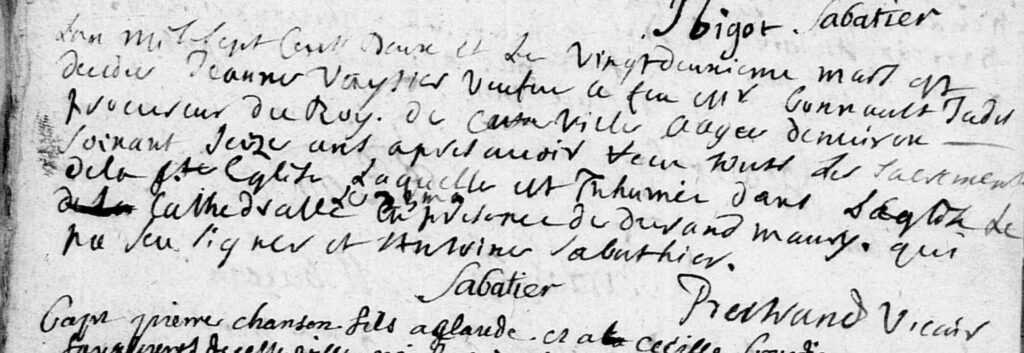 Jbigot Sabatier
Lan mil sept cent deux et Le vingtdeuxieme mars est
decedee Jeanne Vaysier veufue a feu Mr Connault Jadis
procureur du Roy. de cette Ville aagee denuiron
soixant seize ans apres auoir receu touts les sacrements
de la ste Eglise Laquelle est Inhumée dans Leglise
de la Cathedralle en presence de durand maury. qui
na seu signer et Anthoine Sabathier.
Sabatier Vicair
Bapt pierre chanson fils a glaude et a cecille